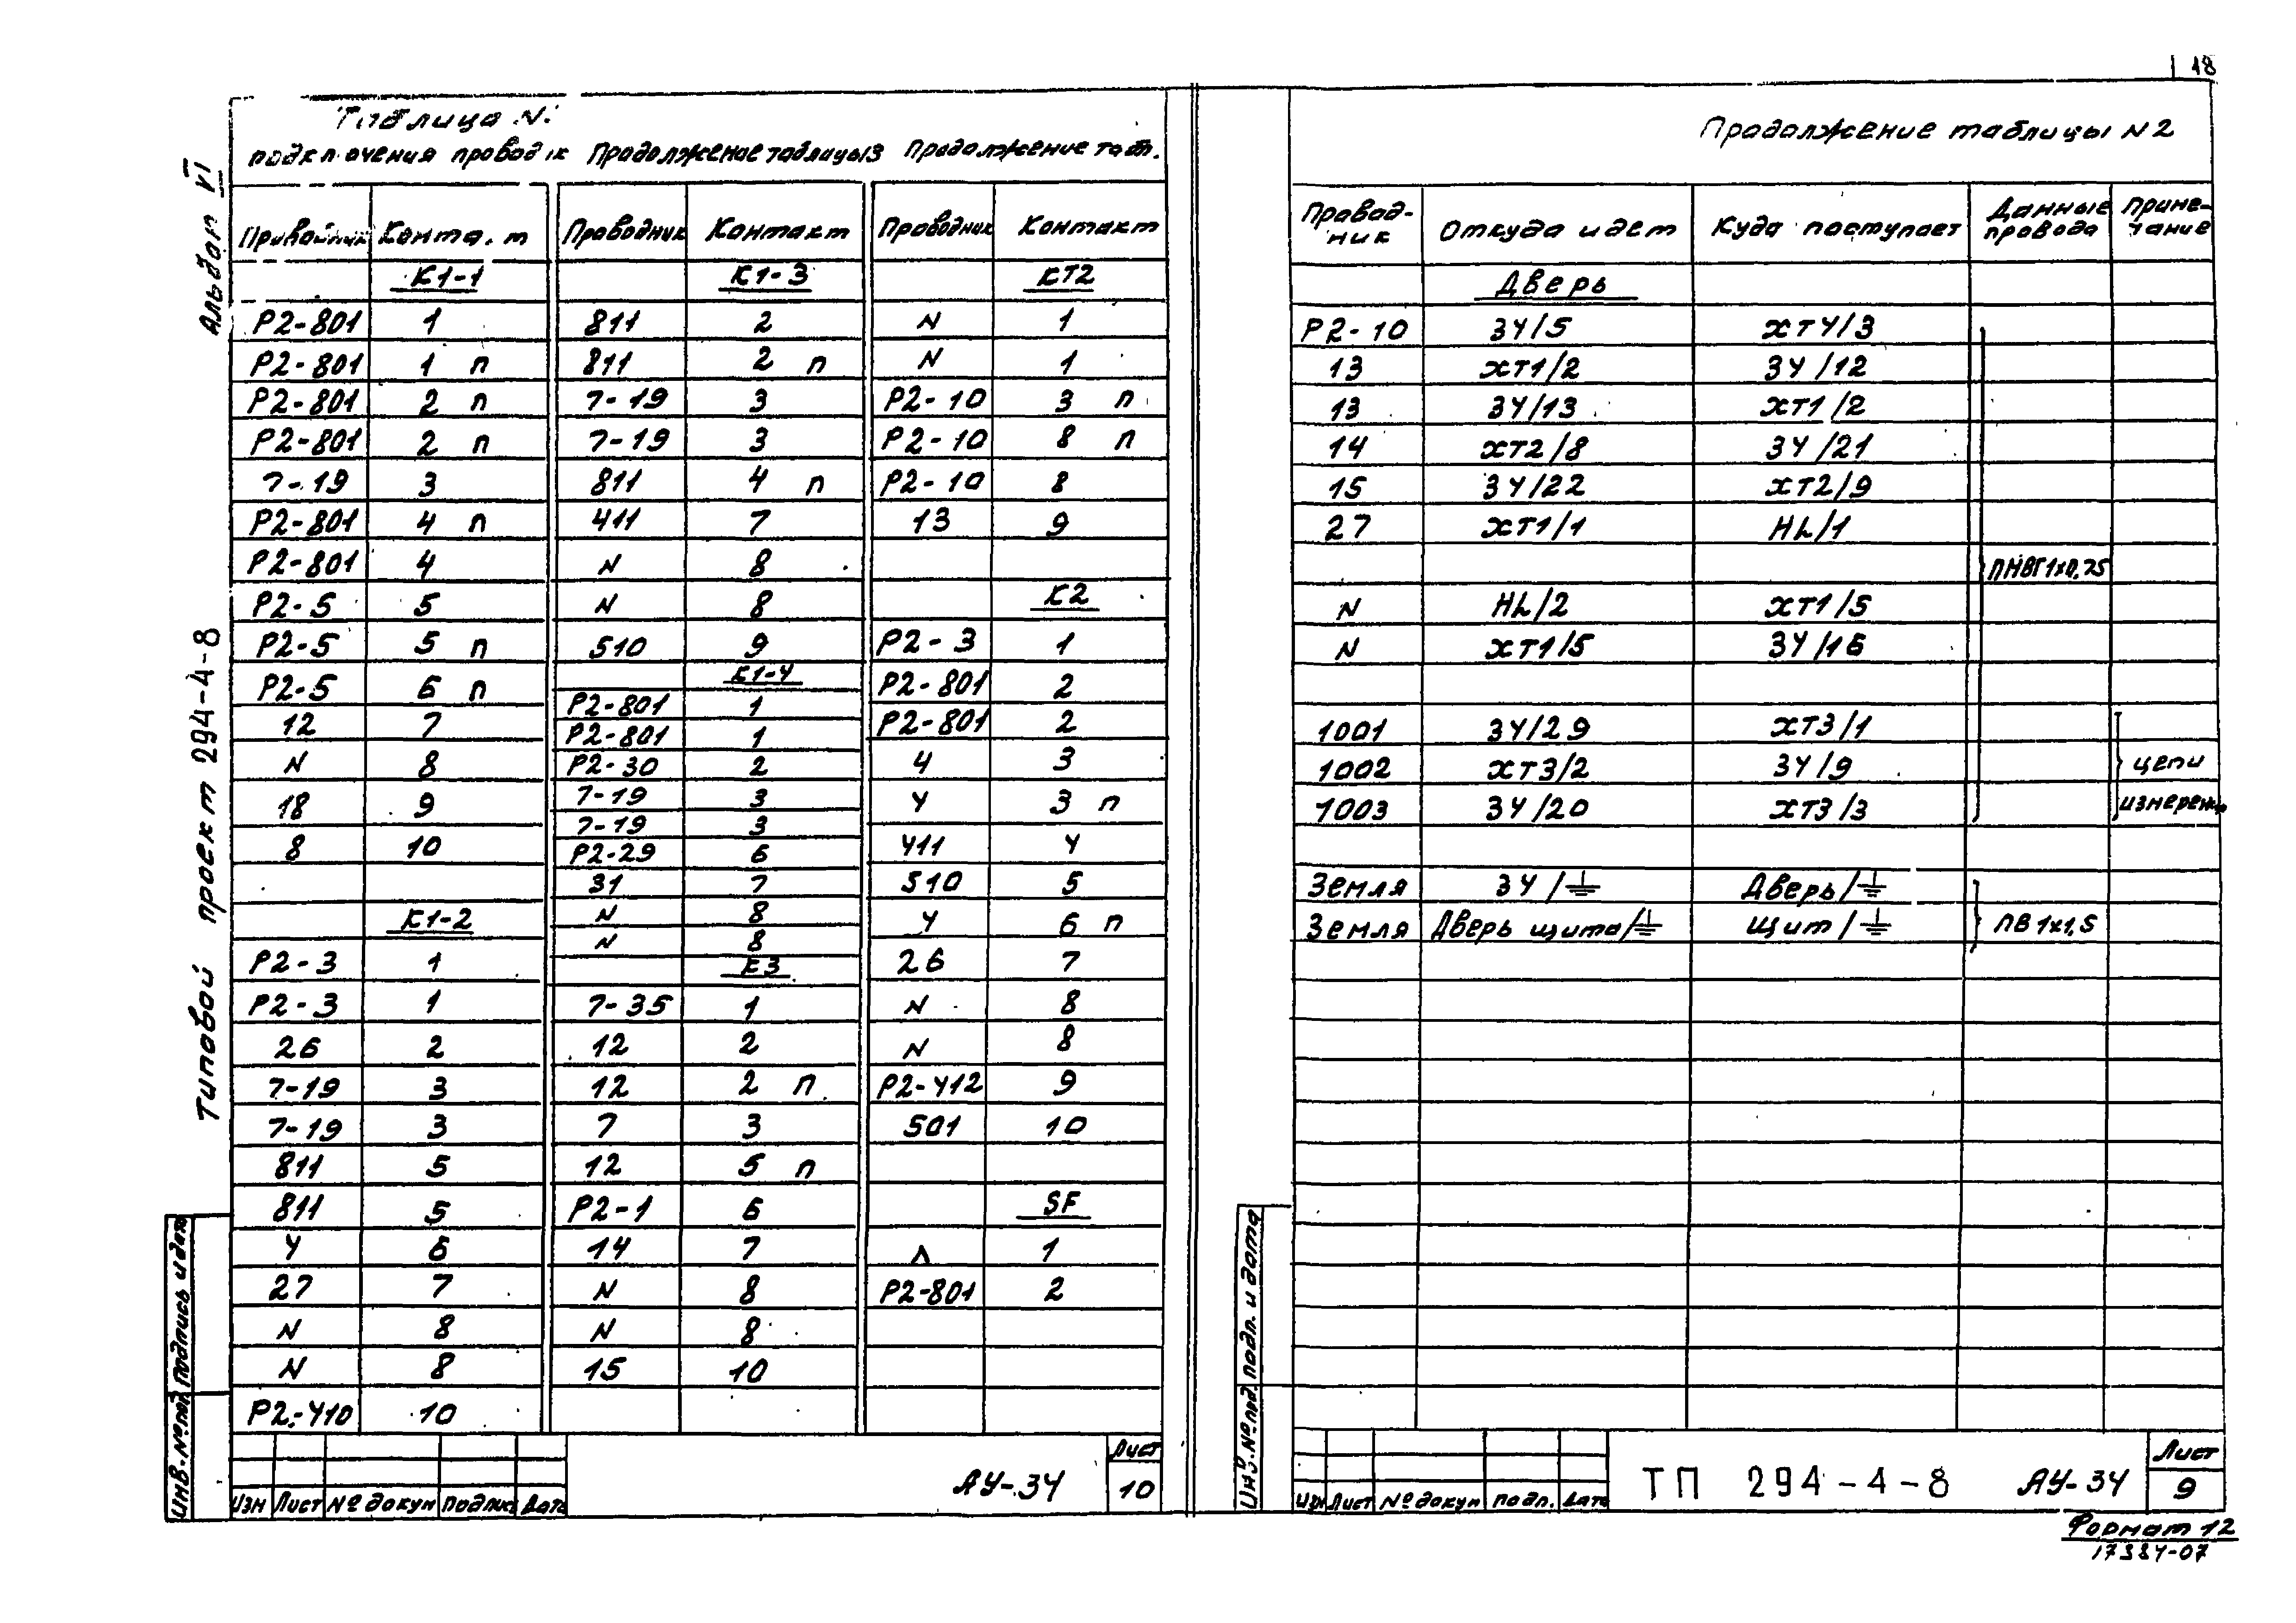 18
Альбом VI
Типовой проект 294-4-8
Таблица N
подключения проводок
Проводник Контакт
К1-1
Р2-801 1
Р2-801 1 п
Р2-801 2 п
Р2-801 2 п
7-19 3
Р2-801 4 п
Р2-801 4
Р2-5 5
Р2-5 5 п
Р2-5 6 п
12 7
N 8
18 9
8 10
К1-2
Р2-3 1
Р2-3 1
26 2
7-19 3
7-19 3
811 5
811 5
4 6
27 7
N 8
N 8
Р2-410 10
Продолжение таблицы 3
Проводник Контакт
К1-3
811 2
811 2 п
7-19 3
7-19 3
811 4 п
411 7
N 8
N 8
510 9
К1-4
Р2-801 1
Р2-801 1
Р2-30 2
7-19 3
7-19 3
Р2-29 6
31 7
N 8
N 8
К3
7-35 1
12 2
12 2 п
7 3
12 5 п
Р2-1 6
14 7
N 8
N 8
15 10
Продолжение табл.
Проводник Контакт
КТ2
N 1
N 1
Р2-10 3 п
Р2-10 8 п
Р2-10 8
13 9
К2
Р2-3 1
Р2-801 2
Р2-801 2
4 3
4 3 п
411 4
510 5
4 6 п
26 7
N 8
N 8
Р2-412 9
501 10
SF
1
Р2-801 2
Инв. № подл Подпись и дата
Изм Лист № докум Подпись Дата
АУ-34
Лист
10
Продолжение таблицы N 2
Провод-
ник Откуда идет Куда поступает Данные
провода Приме-
чание
Дверь
Р2-10 ЗУ/5 ХТ4/3
13 ХТ1/2 ЗУ/12
13 ЗУ/13 ХТ1/2
14 ХТ2/8 ЗУ/21
15 ЗУ/22 ХТ2/9
27 ХТ1/1 HL/1
ПНВГ1х0,75
N HL/2 ХТ1/5
N ХТ1/5 ЗУ/16
1001 ЗУ/29 ХТ3/1
1002 ХТ3/2 ЗУ/9 цепи
1003 ЗУ/20 ХТ3/3 измерен.
Земля ЗУ/⏚ Дверь/⏚
Земля Дверь щита/⏚ Щит/⏚ ПВ 1х1,5
Инв. № подл. Подп. и дата
Изм Лист № докум Подп. Дата
ТП 294-4-8 АУ-34
Лист
9
Формат 12
17384-07